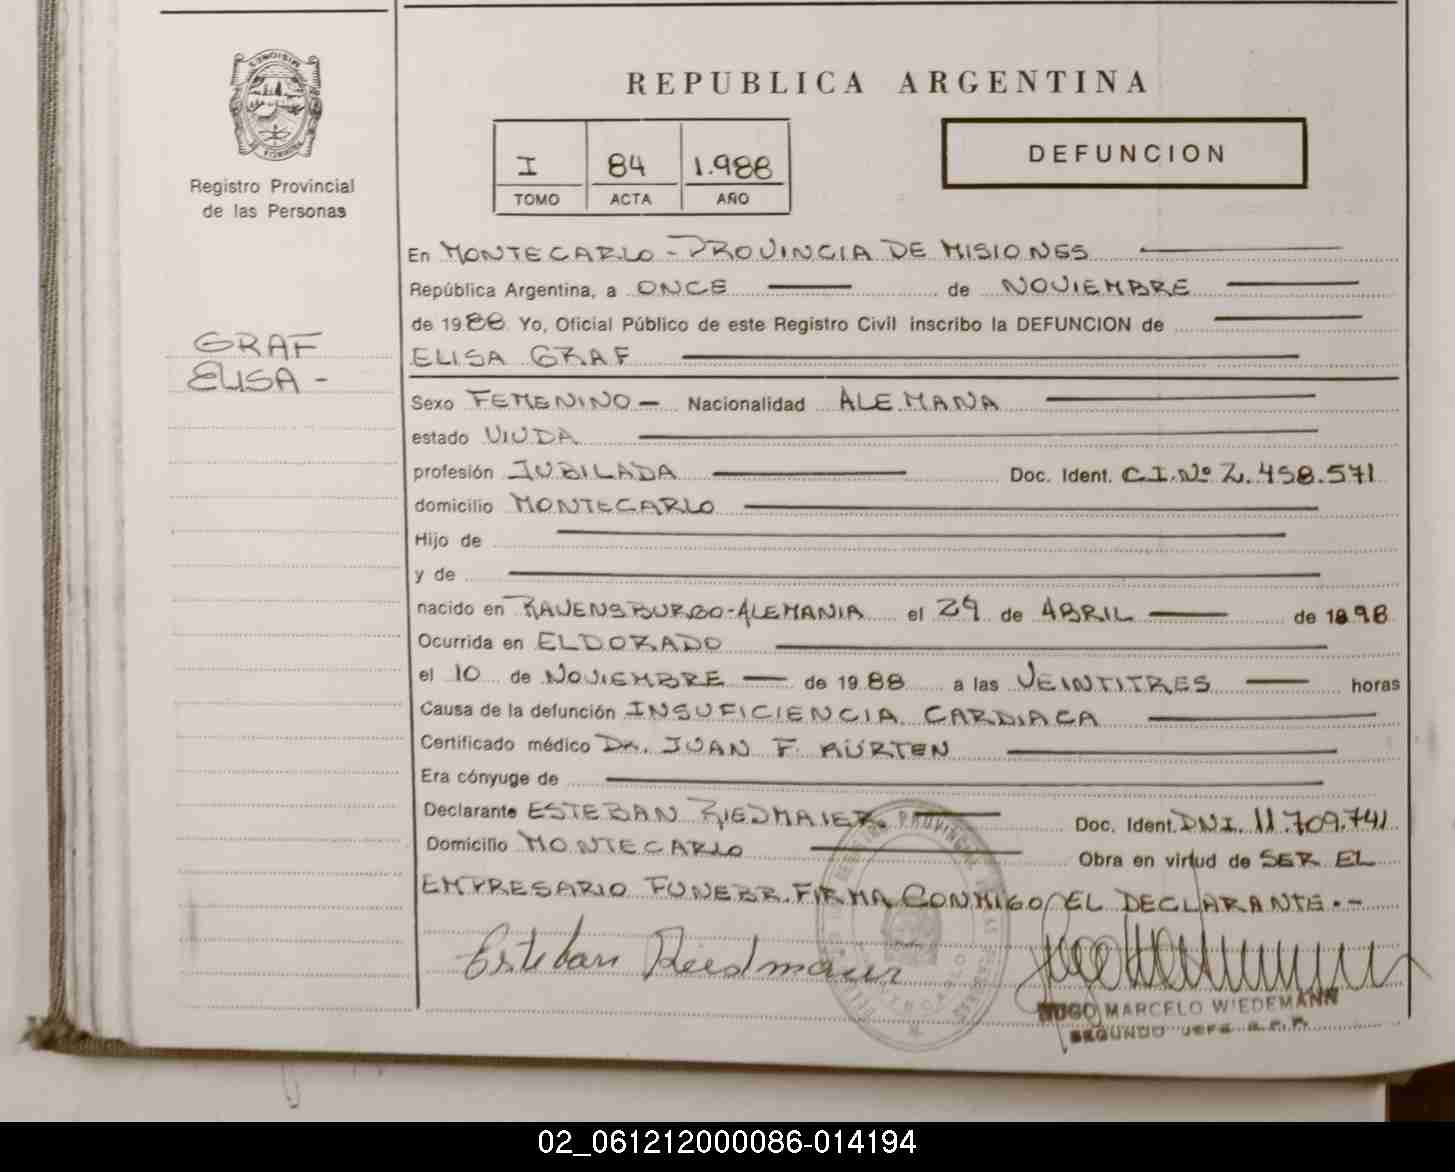 REPUBLICA ARGENTINA
I 84 1.988
TOMO ACTA AÑO
DEFUNCION
Registro Provincial
de las Personas
GRAF
ELISA -
En MONTECARLO - PROVINCIA DE MISIONES
República Argentina, a ONCE de NOVIEMBRE
de 1988 Yo, Oficial Público de este Registro Civil inscribo la DEFUNCION de
ELISA GRAF
Sexo FEMENINO - Nacionalidad ALEMANA
estado VIUDA
profesión JUBILADA Doc. Ident. C.I.Nº 2.458.571
domicilio MONTECARLO
Hijo de
y de
nacido en RAVENSBURGO-ALEMANIA el 29 de ABRIL de 1898
Ocurrida en ELDORADO
el 10 de NOVIEMBRE de 1988 a las VEINTITRES horas
Causa de la defunción INSUFICIENCIA CARDIACA
Certificado médico DR. JUAN F. KÜRTEN
Era cónyuge de
Declarante ESTEBAN RIEDMAIER Doc. Ident. DNI. 11.709.741
Domicilio MONTECARLO Obra en virtud de SER EL
EMPRESARIO FUNEBR. FIRMA CONMIGO EL DECLARANTE.-
Esteban Riedmaier
HUGO MARCELO WIEDEMANN
SEGUNDO JEFE R.P.P.
02_061212000086-014194